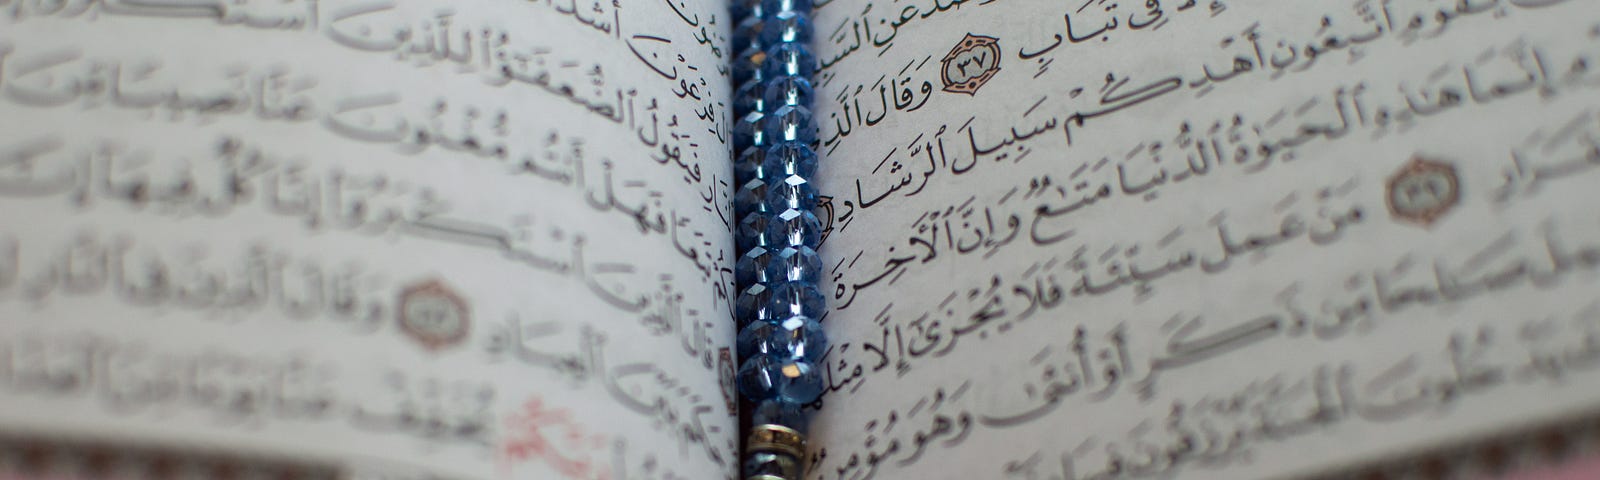 عَنِ ٱلسَّبِي
فِي تَبَابٍ ٣٧ وَقَالَ ٱلَّذِي
يَٰقَوْمِ ٱتَّبِعُونِ أَهْدِكُمْ سَبِيلَ ٱلرَّشَادِ
إِنَّمَا هَٰذِهِ ٱلْحَيَوٰةُ ٱلدُّنْيَا مَتَٰعٌ وَإِنَّ ٱلْأَخِرَةَ
قَرَارِ ٣٩ مَنْ عَمِلَ سَيِّئَةً فَلَا يُجْزَىٰٓ إِلَّا مِثْلَهَا
عَمِلَ صَٰلِحًا مِّن ذَكَرٍ أَوْ أُنثَىٰ وَهُوَ مُؤْمِنٌ
يَدْخُلُونَ ٱلْجَنَّةَ يُرْزَقُونَ فِيهَا
فِرْعَوْنَ أَشَدَّ
فَيَقُولُ ٱلضُّعَفَٰٓؤُا۟ لِلَّذِينَ ٱسْتَكْبَرُوٓا۟
تَبَعًا فَهَلْ أَنتُم مُّغْنُونَ عَنَّا نَصِيبًا مِّنَ
قَالَ ٱلَّذِينَ ٱسْتَكْبَرُوٓا۟ إِنَّا كُلٌّ فِيهَآ إِنَّ
حَكَمَ بَيْنَ ٱلْعِبَادِ ٤٨ وَقَالَ ٱلَّذِينَ فِي ٱلنَّارِ
يُخَفِّفْ عَنَّا يَوْمًا مِّنَ ٱلْعَذَابِ